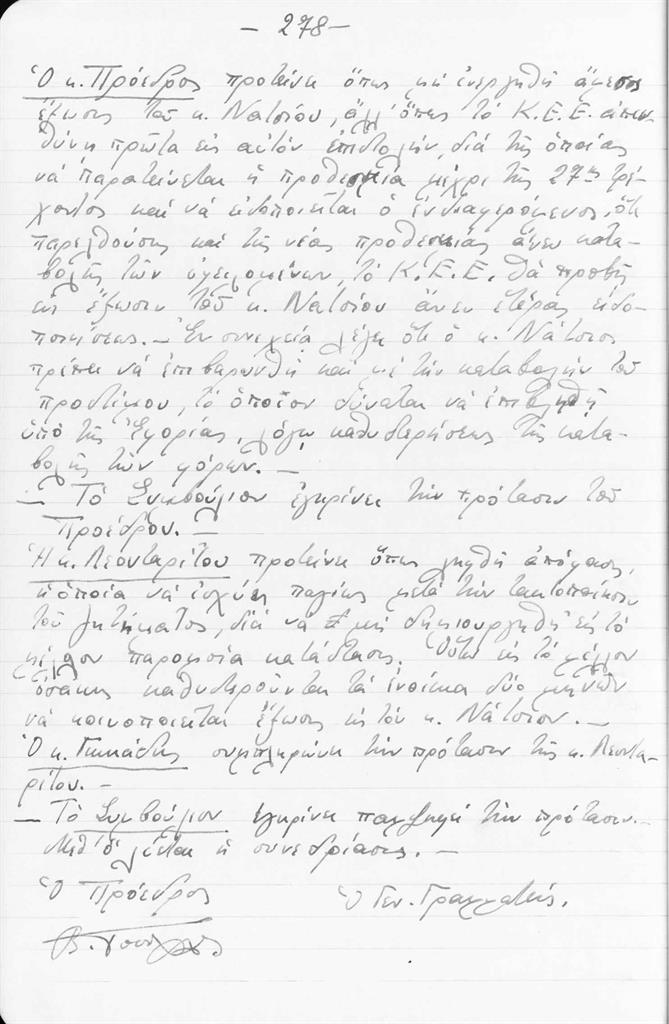 — 278 —
Ὁ κ. Πρόεδρος προτείνει ὅπως μή ἐνεργηθῇ ἄμεσος
ἔξωσις τοῦ κ. Νατσίου, ἀλλ' ὅπως τό Κ.Ε.Ε. ἀπευ-
θύνῃ πρῶτα εἰς αὐτόν ἐπιστολήν, διά τῆς ὁποίας
νά παρατείνεται ἡ προθεσμία μέχρι τῆς 27ης τρέ-
χοντος καί νά εἰδοποιεῖται ὁ ἐνδιαφερόμενος, ὅτι
παρελθούσης καί τῆς νέας προθεσμίας ἄνευ κατα-
βολῆς τῶν ὀφειλομένων, τό Κ.Ε.Ε. θά προβῇ
εἰς ἔξωσιν τοῦ κ. Νατσίου ἄνευ ἑτέρας εἰδο-
ποιήσεως. — Ἐν συνεχείᾳ λέγει ὅτι ὁ κ. Νάτσιος
πρέπει νά ἐπιβαρυνθῇ καί μέ τήν καταβολήν τοῦ
προστίμου, τό ὁποῖον δύναται νά ἐπιβληθῇ
ὑπό τῆς Ἐφορίας, λόγῳ καθυστερήσεως τῆς κατα-
βολῆς τῶν φόρων. —
— Τό Συμβούλιον ἐγκρίνει τήν πρότασιν τοῦ
Προέδρου. —
Ἡ κ. Λεονταρίτου προτείνει ὅπως ληφθῇ ἀπόφασις,
ἡ ὁποία νά ἰσχύει παγίως μετά τήν τακτοποίησιν
τοῦ ζητήματος, διά νά μή δημιουργηθῇ εἰς τό
μέλλον παρομοία κατάστασις. Οὕτω εἰς τό μέλλον
ὁσάκις καθυστεροῦνται τά ἐνοίκια δύο μηνῶν
νά κοινοποιεῖται ἔξωσις εἰς τόν κ. Νάτσιον. —
Ὁ κ. συμπληρώνει τήν πρότασιν τῆς κ. Λεοντα-
ρίτου. —
— Τό Συμβούλιον ἐγκρίνει παμψηφεί τήν πρότασιν. —
Μεθ' ὅ λύεται ἡ συνεδρίασις. —
Ὁ Πρόεδρος Ὁ Γεν. Γραμματεύς.